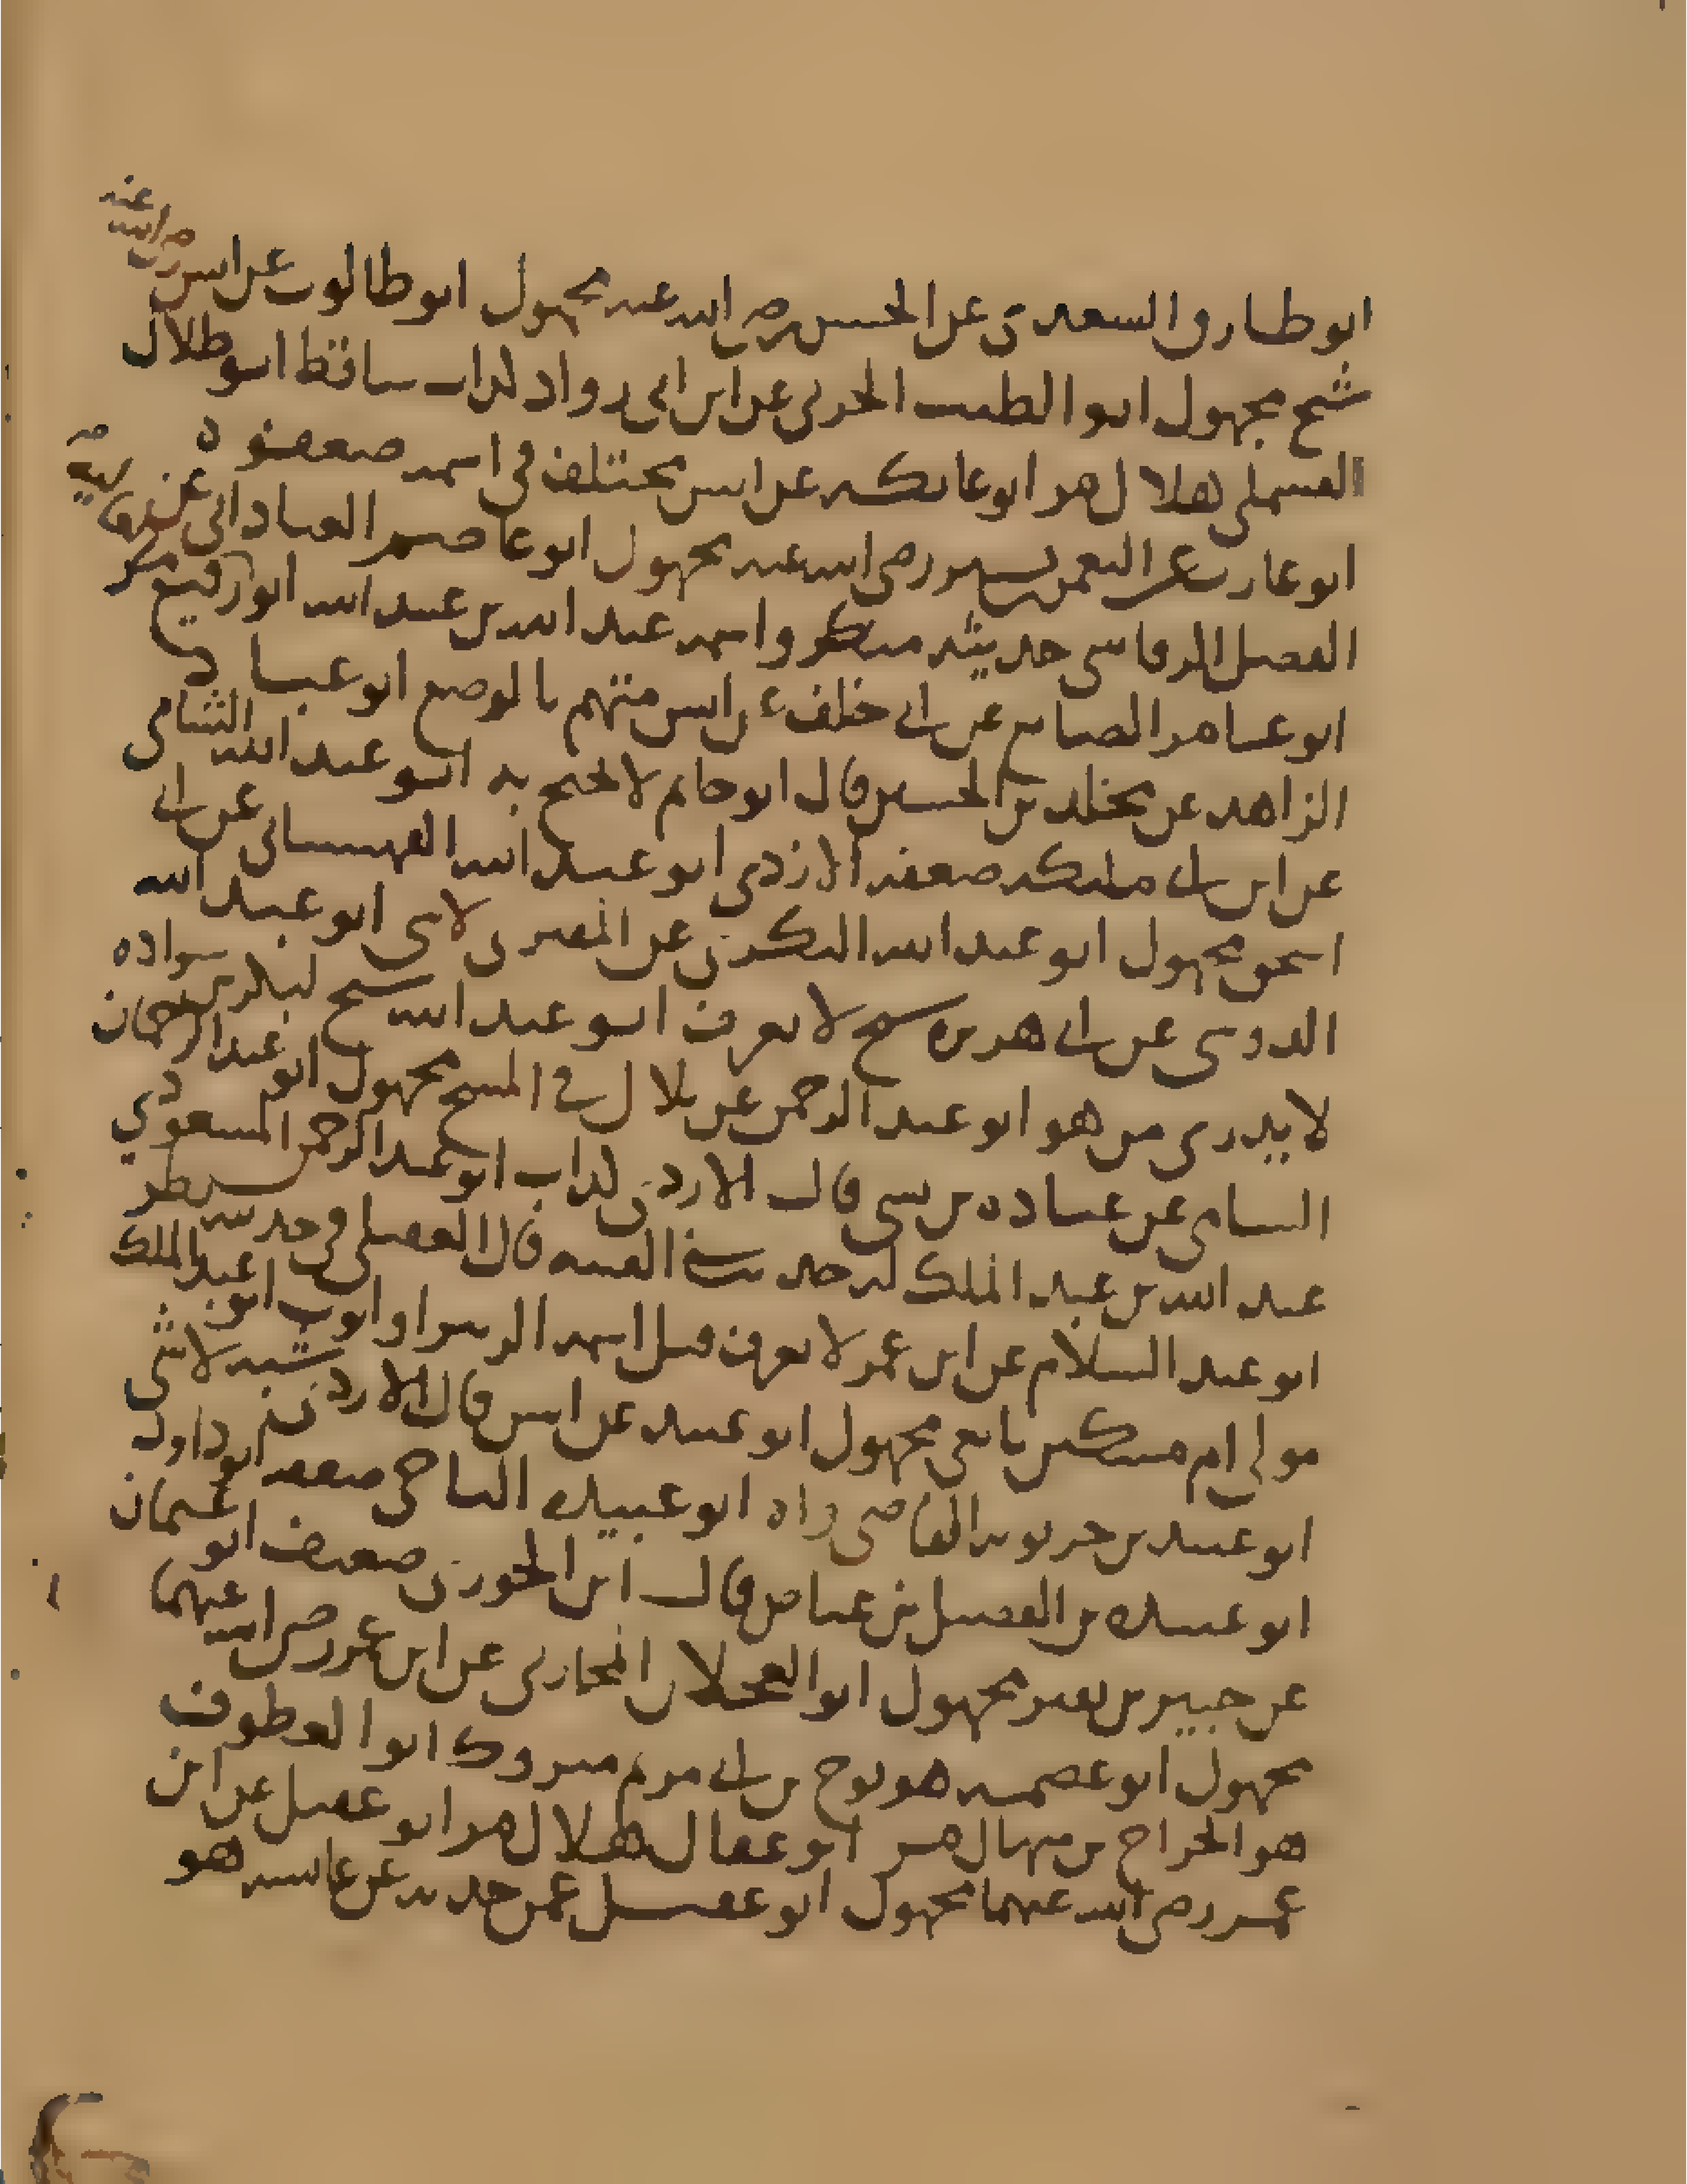 ابو طارق السعدي عن الحسن رضي الله عنه مجهول ابو طالوت عن انس رضي الله عنه
شيخ مجهول ابو الطيب الحربي عن ابن ابي رواد كذاب ساقط ابو ظلال
القسملي هلال مر ابو عاتكه عن انس مختلف في اسمه ضعفوه
ابو عازب عن النعمن بن بشير رضي الله عنه مجهول ابو عاصم العباداني عن
الفضل الرقاشي حديثه منكر واسمه عبد الله بن عبيد الله
ابو عامر الصايغ عن ابي خلف عن انس متهم بالوضع ابو عباد
الزاهد عن مخلد بن الحسين قال ابو حاتم لا يحتج به ابو عبد الله الشامي
عن ابن ابي مليكه ضعفه الازدي ابو عبد الله عن ابي
اسحق مجهول ابو عبد الله البكري عن المقبري لا شي ابو عبد الله
الدوسي عن ابي هريره شيخ لا يعرف ابو عبد الله شيخ لبكر بن سواده
لا يدرى من هو ابو عبد الرحمن عن بلال في المسح مجهول ابو عبد الرحمان
الشامي عن عباده بن نسي قال الازدي كذاب ابو عبد الرحمن المسعودي
عبد الله بن عبد الملك له حديث في الفتنه قال العقيلي في حديثه نظر
ابو عبد السلام عن ابن عمر لا يعرف قيل اسمه الزبير او ايوب ابو عبد الملك
مولى ام مسكين تابعي مجهول ابو عبيد عن انس قال الازدي شبه لا شي
ابو عبيد بن حربويه القاضي ابو عبيده الناجي ضعفه ابو داود
ابو عبيده بن الفضيل بن عياض قال ابن الجوزي ضعيف ابو عثمان
عن جبير بن نفير مجهول ابو العجلان المحاربي عن ابن عمر رضي الله عنهما
مجهول ابو عصمه هو نوح بن ابي مريم متروك ابو العطوف
هو الجراح بن منهال مر ابو عقال هلال مر ابو عقيل عن ابن
عمر رضي الله عنهما مجهول ابو عقيل عمن حدثه عن عايشه هو